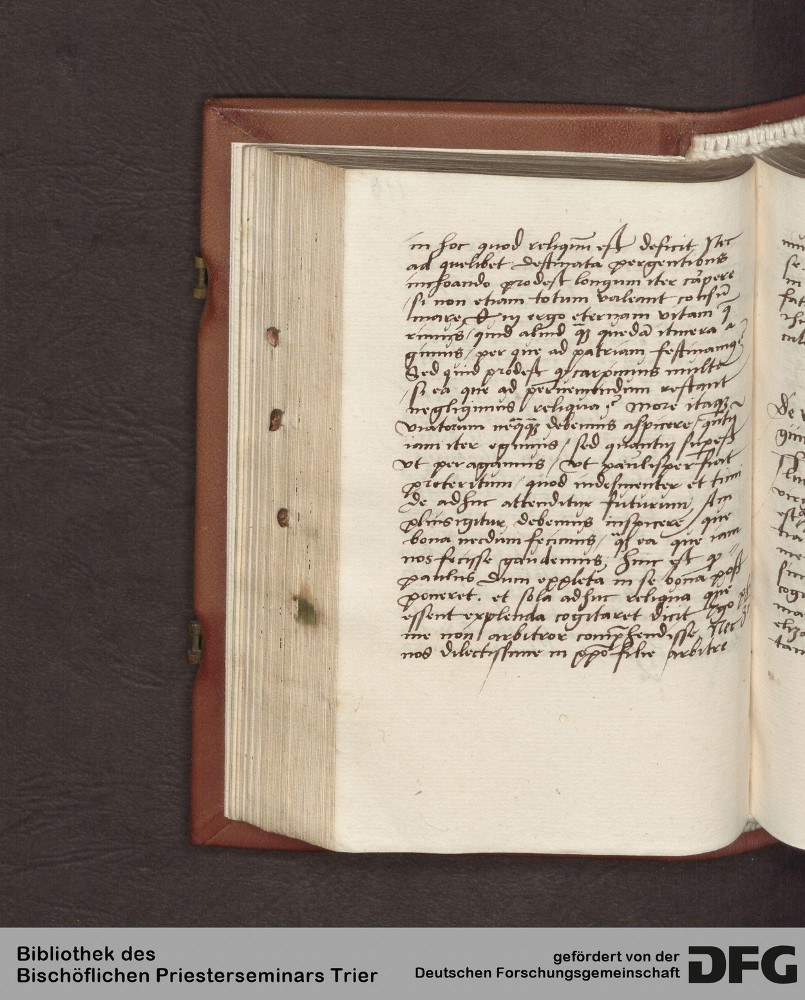 in hoc quod reliquū est deficit Nec
ad quelibet destinata pergentibus
inchoando prodest longum iter carpere
si non etiam totum valeant cōsū
mare Et ergo eternam vitam q̄
rimus / quid aliud quedā itinera a
gimus / per que ad patriam festinamus
Sed quid prodest q carpimus multa
si ea que ad perveniendum restant
negligimus reliqua? More itaque
viatorum debemus aspicere / quātū
iam iter egimus / sed quantū supest
vt peragamus / vt paulisper fiat
preteritum / quod indesinenter et timi
de adhuc attenditur futurum / Am
plius igitur debemus inspicere / que
bona necdum fecimus / q̄ ea que iam
nos fecisse gaudemus hinc est q
paulus dum expleta in se bona post
poneret . et sola adhuc reliqua que
essent explenda cogitaret dicit Ego
me non arbitror comp̄hendisse / Nec
nos dilectissime in xp̄o filie arbitre
Bibliothek des
Bischöflichen Priesterseminars Trier
gefördert von der
Deutschen Forschungsgemeinschaft
DFG